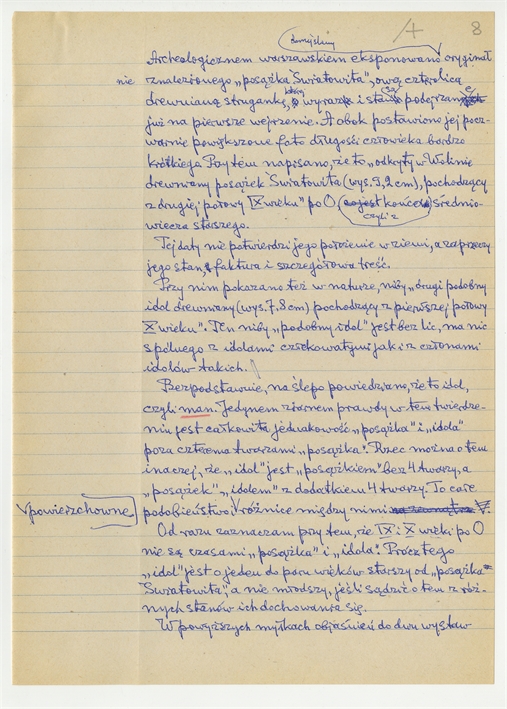 /4 8
zmyślny
Archeologicznem warszawskiem eksponowano oryginał
nie znalezionego „posążka Światowita”, ową czterolicą
drewnianą struganką, o wyrazie i podejrzanej
już na pierwsze wejrzenie. A obok postawiono jej pocz-
warnie powiększone foto długości człowieka bardzo
krótkiego Przytem napisano, że to „odkryty w Wolinie
drewniany posążek Światowita (wys. 9,2 cm), pochodzący
z drugiej połowy IX wieku” po 0, średnio-
czyli z
wiecza starszego.
Tej daty nie potwierdzi jego położenie w ziemi, a zaprzeczy
jego stan, faktura i szczegółowa treść.
Przy nim pokazano też w naturze, niby „drugi podobny
idol drewniany (wys. 7.8 cm) pochodzący z pierwszej połowy
X wieku”. Ten niby „podobny idol” jest bez lic, ma nic
spólnego z idolami człekowatymi jak i z członami
idolów takich.
Bezpodstawnie, na ślepo powiedziano, że to idol,
czyli man. Jedynem ziarnem prawdy w tem twierdze-
niu jest całkowita jednakowość „posążka” i „idola”
poza czterema twarzami „posążka”. Rzec można o tem
inaczej, że „idol” jest „posążkiem” bez 4 twarzy, a
„posążek” „idolem” z dodatkiem 4 twarzy. To całe
powierzchowne podobieństwo i różnice między nimi na zewnątrz V.
Od razu zaznaczam przy tem, że IX i X wieki po 0
nie są czasami „posążka” i „idola”. Prócz tego
„idol” jest o jeden do paru wieków starszy od „posążka
Światowita”, a nie młodszy, jeśli sądzić o tem z róż-
nych stanów ich dochowania się.
W powyższych myłkach objaśnień do dwu wystaw